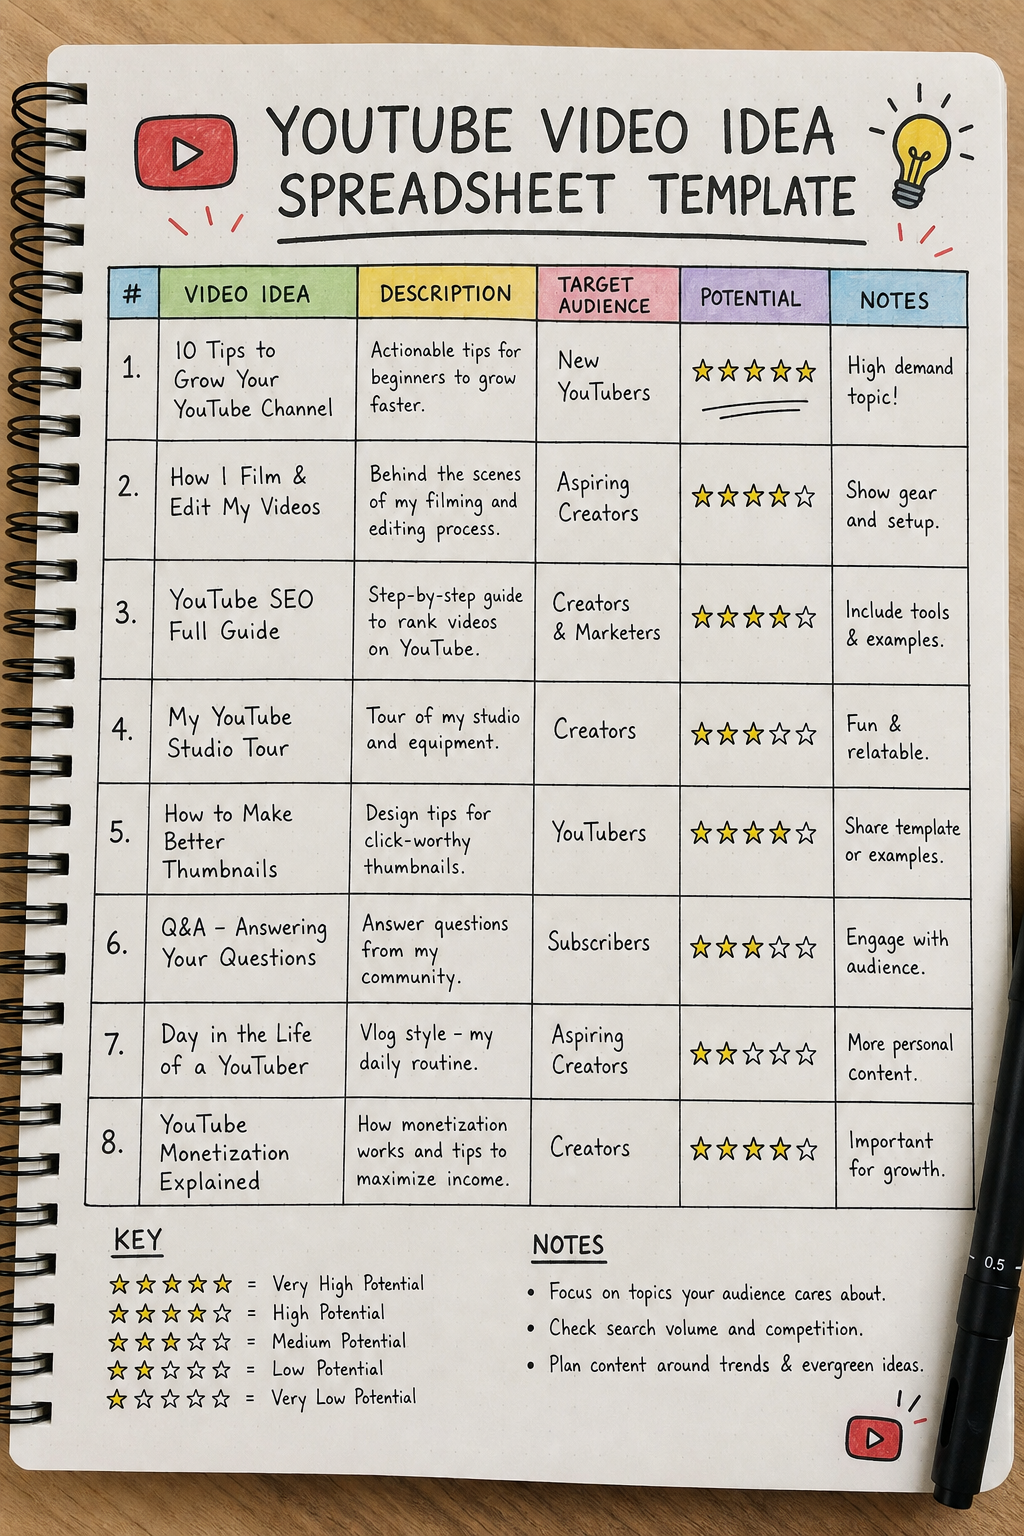 YOUTUBE VIDEO IDEA
SPREADSHEET TEMPLATE
#
VIDEO IDEA
DESCRIPTION
TARGET
AUDIENCE
POTENTIAL
NOTES
1.
10 Tips to
Grow Your
YouTube Channel
Actionable tips for
beginners to grow
faster.
New
YouTubers
High demand
topic!
2.
How I Film &
Edit My Videos
Behind the scenes
of my filming and
editing process.
Aspiring
Creators
Show gear
and setup.
3.
YouTube SEO
Full Guide
Step-by-step guide
to rank videos
on YouTube.
Creators
& Marketers
Include tools
& examples.
4.
My YouTube
Studio Tour
Tour of my studio
and equipment.
Creators
Fun &
relatable.
5.
How to Make
Better
Thumbnails
Design tips for
click-worthy
thumbnails.
YouTubers
Share template
or examples.
6.
Q&A – Answering
Your Questions
Answer questions
from my
community.
Subscribers
Engage with
audience.
7.
Day in the Life
of a YouTuber
Vlog style – my
daily routine.
Aspiring
Creators
More personal
content.
8.
YouTube
Monetization
Explained
How monetization
works and tips to
maximize income.
Creators
Important
for growth.
KEY
= Very High Potential
= High Potential
= Medium Potential
= Low Potential
= Very Low Potential
NOTES
• Focus on topics your audience cares about.
• Check search volume and competition.
• Plan content around trends & evergreen ideas.
0.5